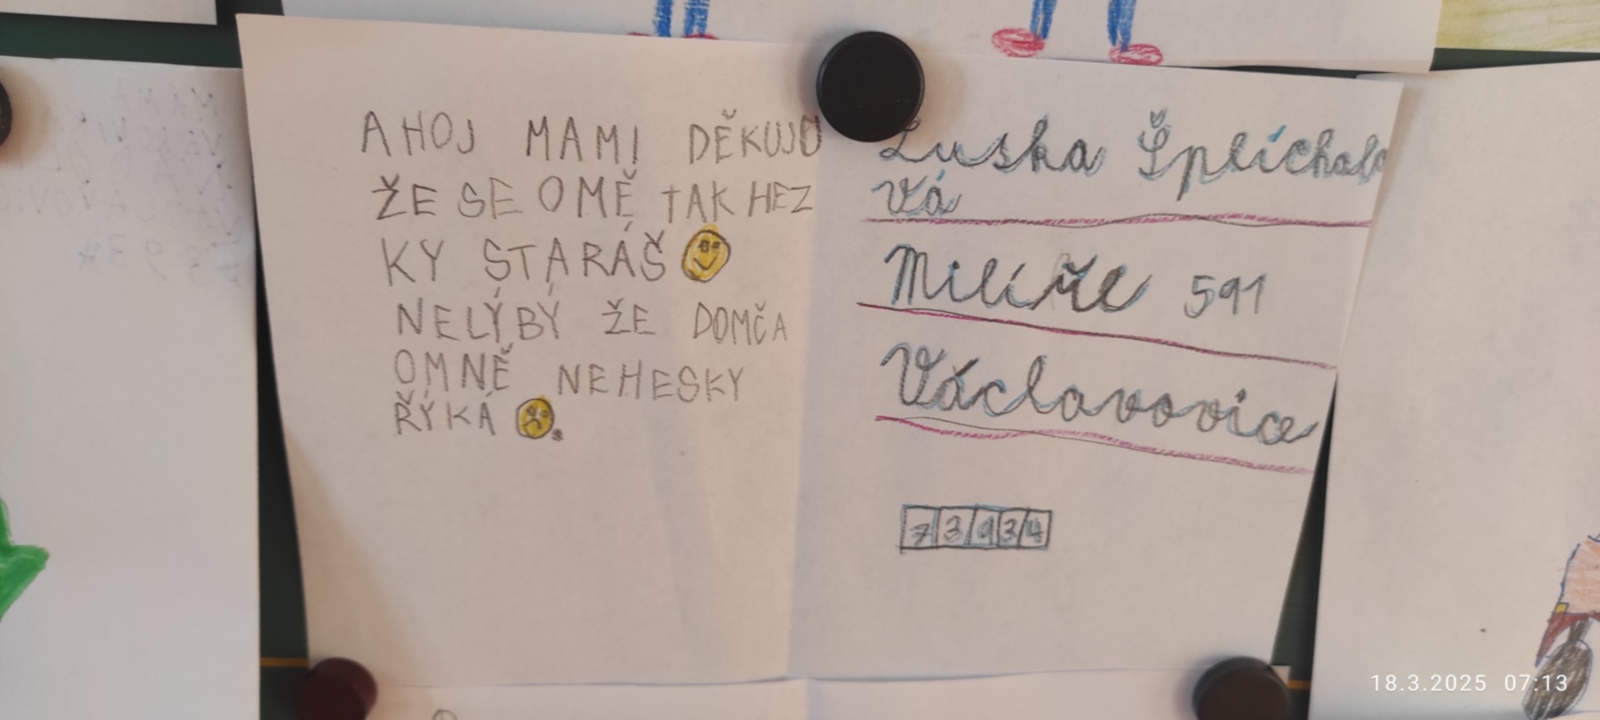 AHOJ MAMI DĚKUJU
ŽE SE OMĚ TAK HEZ
KY STARÁŠ
NELÝBÝ ŽE DOMČA
OMNĚ NEHESKY
ŘÝKÁ
Luska Šplíchalo
vá
Milíře 591
Václavovice
73934
18.3.2025 07:13